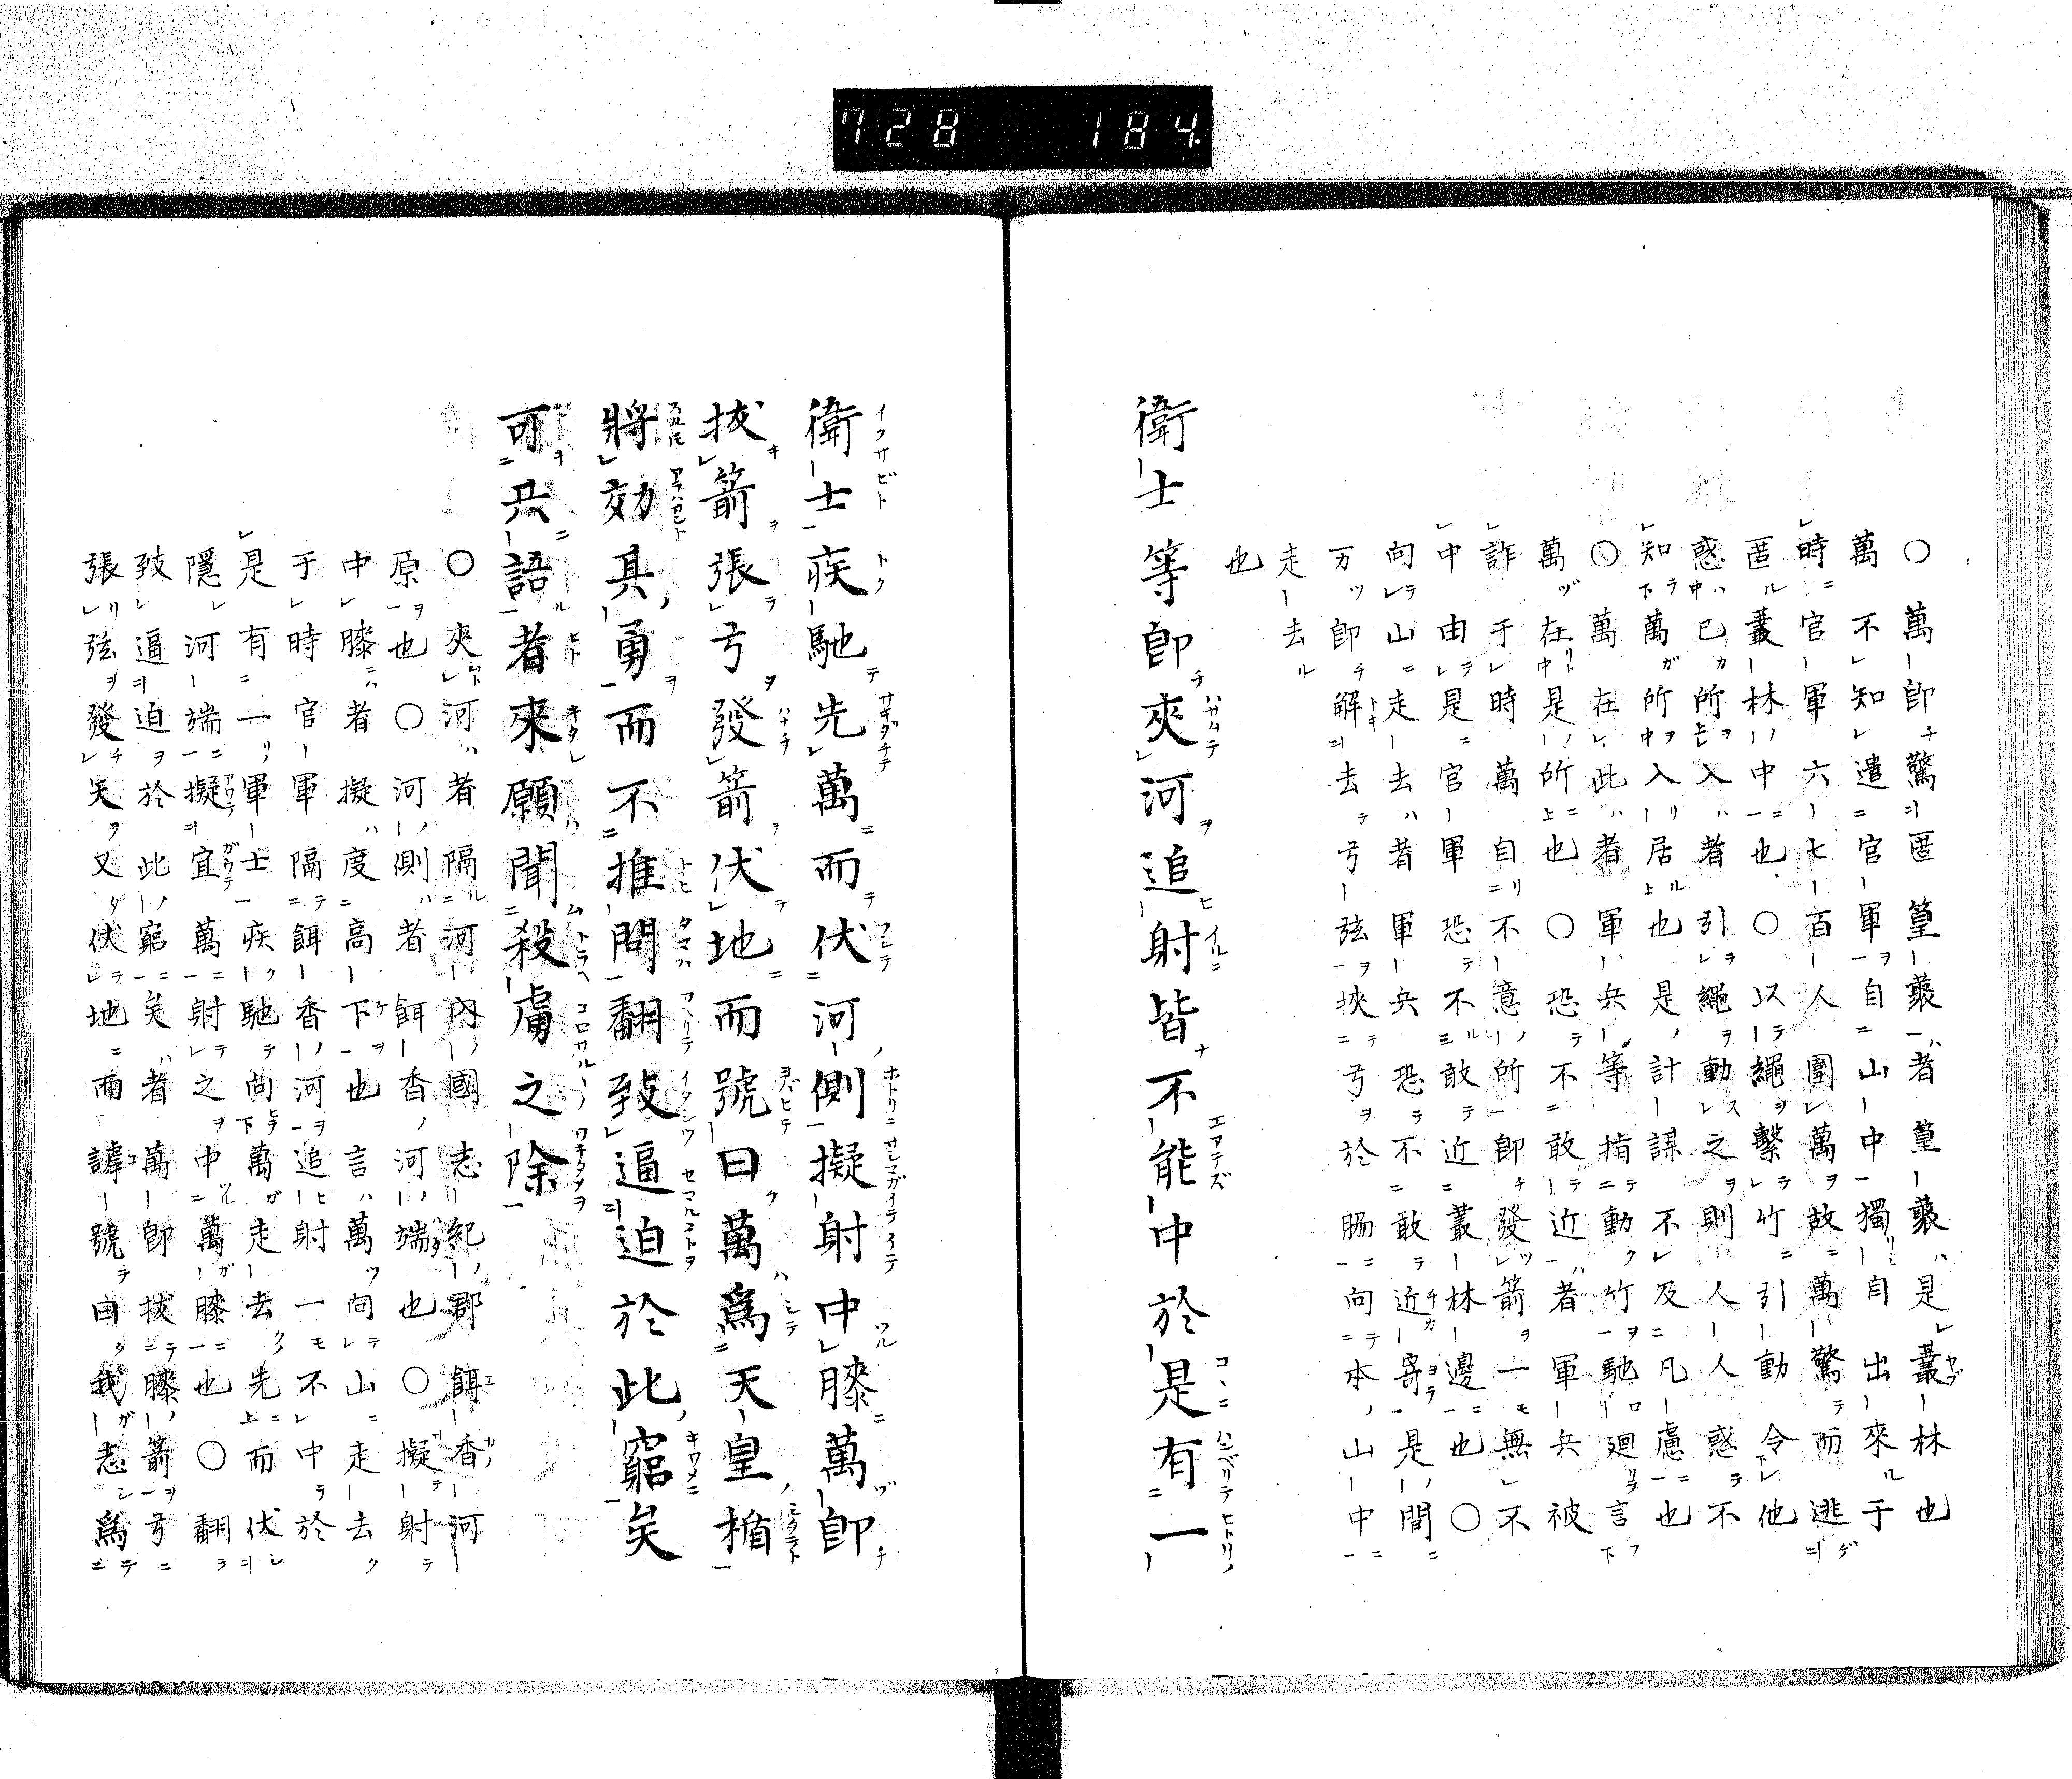 728 184.
○萬即驚匿篁藂者篁藂是叢林也
萬不知遣官軍自山中獨自出來于
時官軍六七百人圍萬故萬驚而逃
匿叢林中也○以繩繫竹引動令他
惑已所入者引繩動之則人人惑不
知萬所入居也是計謀不及凡慮也
○萬在此者軍兵等指動竹馳廻言
萬在是所也○恐不敢近者軍兵被
詐于時萬自不意所即發箭一無不
中由是官軍恐不敢近叢林邊也○
向山走去者軍兵恐不敢近寄是間
万即解去弓弦挾弓於腸向本山中
走去
也
衛士等即夾河追射皆不能中於是有一
衛士疾馳先萬而伏河側擬射中膝萬即
拔箭張弓發箭伏地而號曰萬爲天皇楯
將効其勇而不推問翻致逼迫於此窮矣
可共語者來願聞殺虜之除
○夾河者隔河內國志紀郡餌香河
原也○河側者餌香河端也○擬射
中膝者擬度高下也言萬向山走去
于時官軍隔餌香河追射一不中於
是有一軍士疾馳向萬走去先而伏
隱河端擬宜萬射之中萬膝也○翻
致逼迫於此窮矣者萬即拔膝箭弓
張弦發矢又伏地而諱號曰我志爲